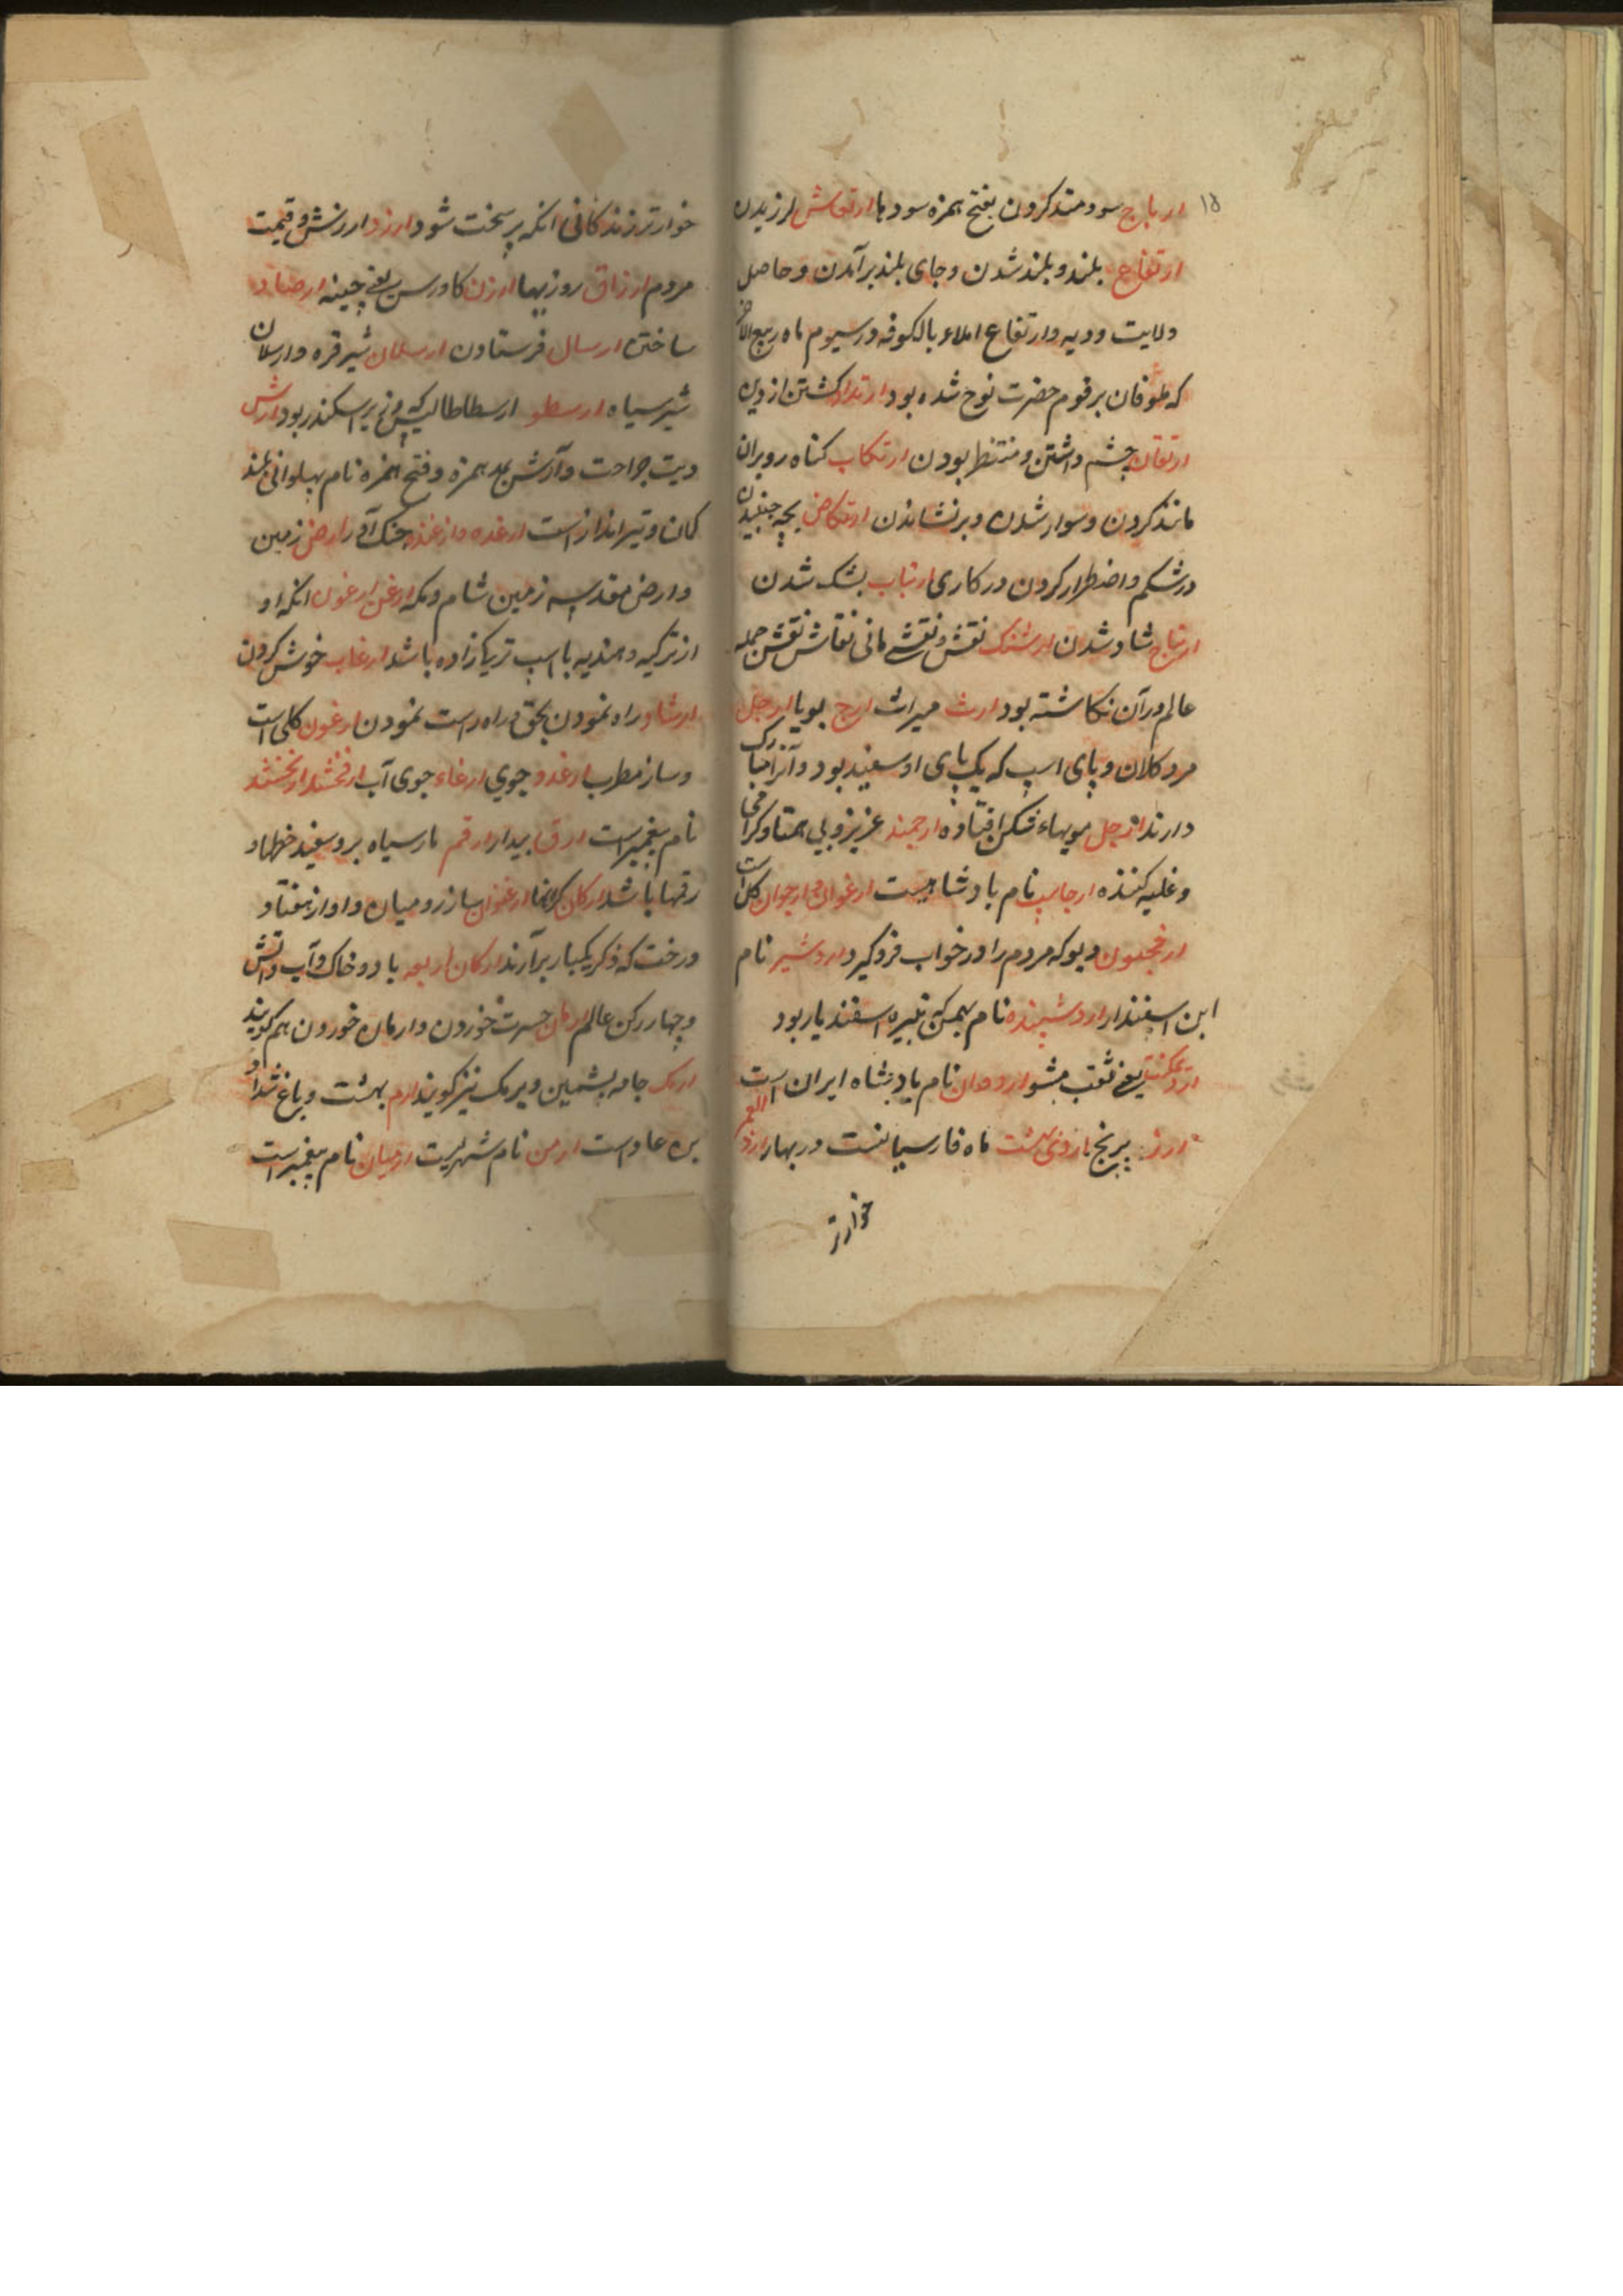 ۱۵
ارباح سودمند کردن بفتح همزه سودها ارتعاش لرزیدن
ارتفاع بلند و بلند شدن و جای بلند برآمدن و حاصل
ولایت و دیه و ارتفاع املاء بالکوفه در سیوم ماه ربیع الاخر
که طوفان بر قوم حضرت نوح شده بود ارتداد کشتن از دین
ارتقاب چشم داشتن و منتظر بودن ارتکاب کناه روبران
مانند کردن و سوار شدن و برنشاندن ارتکاض بچه جنبیدن
در شکم و اضطرار کردن در کاری ارتیاب بشک شدن
ارتیاح شاد شدن ارتنک نقش و نقشهٔ مانی نقاش نقش جمله
عالم در آن نکاشته بود ارث میراث ارج بویا ارجل
مرد کلان و پای اسپ که یک پای او سفید بود و آنرا
دارند ارجل مویهاء فتاده ارجمند عزیز و بی همتا و کرامی
و غلبه کننده ارجاسپ نام بادشاهیست ارغوان و ارجوان کل است
دیو که مردم را در خواب فرو کیرد اردشیر نام
ابن اسفندار نام بهمن که نبیره اسفندیار بود
یعنی مشو اردوان نام پادشاه ایران است
ارز برنج اردی بهشت ماه فارسیانست در بهار ارذل العمر
خوارتر
خوارتر زندکانی انکه پیر سخت شود ارزد ارزش و قیمت
مردم ارزاق روزیها ارزن کاورس یعنی چینه ارصاد
ساختن ارسال فرستادن ارسلان شیر قره و ارسلان
شیر سیاه ارسطو ارسطاطالیس که وزیر اسکندر بود ارش
دیت جراحت و آرش بمد همزه و فتح همزه نام پهلوانی بلند
کمان و تیر انداز است ارغده و ارغنده جنک آور ارض زمین
و ارض مقدسه زمین شام و مکه ارغن ارغون انکه او
از ترکیه و هندیه با اسپ تریک زاده باشد ارغاب خوش کردن
ارشاد راه نمودن بحق و راه راست نمودن ارغون کلی است
و ساز مطرب ارغدو جوی ارغاء جوی آب ارفخشد ارفخشد
نام پیغمبر است ارق بیدار ارقم مار سیاه برو سفید خطها و
رقمها باشد ارکان کرانها ارغنون ساز رومیان و آواز هفتاد
درخت که ذکر یکبار برآرند ارکان اربعه باد و خاک و آب و آتش
و چهار رکن عالم ارمان حسرت خوردن و ارمان خوردن هم کویند
ارمک جامه پشمین و یرمک نیز کویند ارم بهشت و باغ شداد
بن عاد است ارمن نام شهریست ارمیان نام پیغمبر است